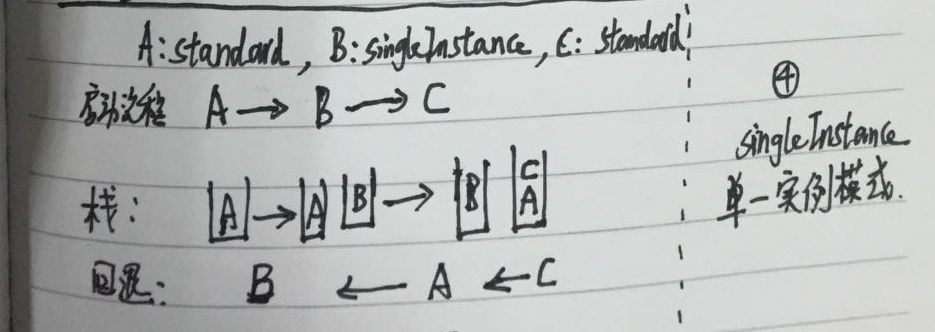 A: standard, B: singleInstance, C: standard
启动流程 A → B → C
栈: A → A B → B C A
回退: B ← A ← C
④
singleInstance
单一实例模式.